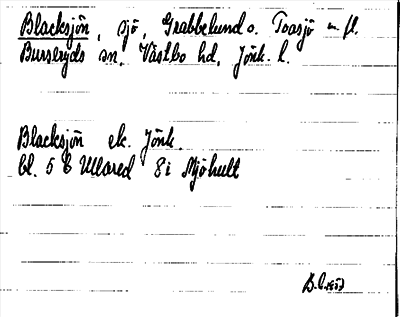 Blacksjön, sjö, Grabbelund o. Toasjö m. fl.
Burseryds sn, Västbo hd, Jönk. l.
Blacksjön ek. Jönk.
bl. 5 C Ullared 8i Mjöhult